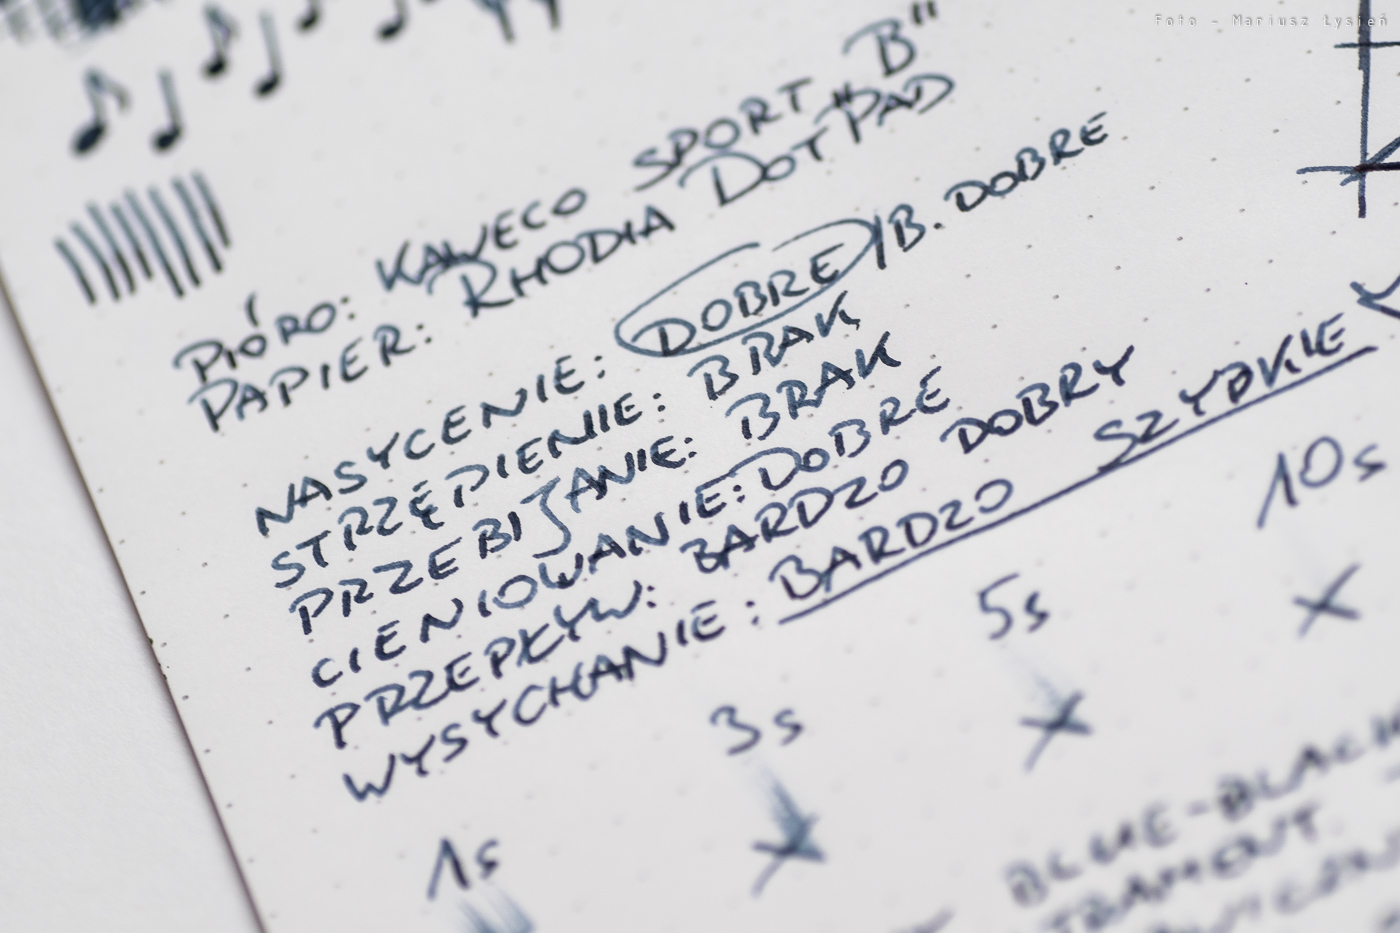 Foto - Mariusz Łysień
PIÓRO: KAWECO SPORT "B"
PAPIER: RHODIA DOTPAD
NASYCENIE: DOBRE/B. DOBRE
STRZĘPIENIE: BRAK
PRZEBIJANIE: BRAK
CIENIOWANIE: DOBRE
PRZEPŁYW: BARDZO DOBRY
WYSYCHANIE: BARDZO SZYPKIE
1s 3s 5s 10s
BLUE-BLACK